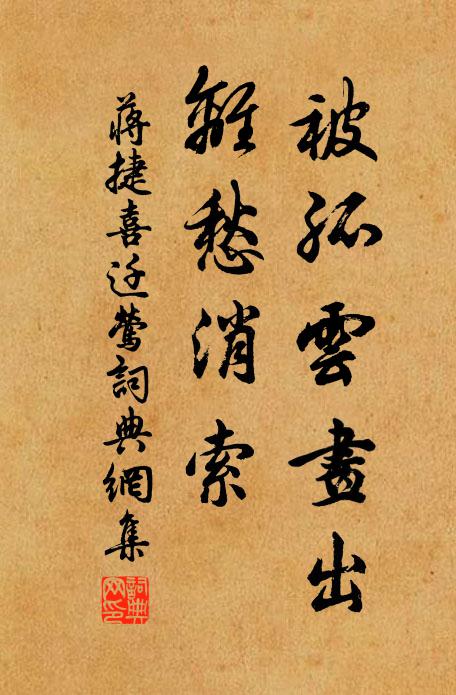 被孤雲畫出
離愁消索
蔣捷喜迁鶯詞典網集
詞典網印